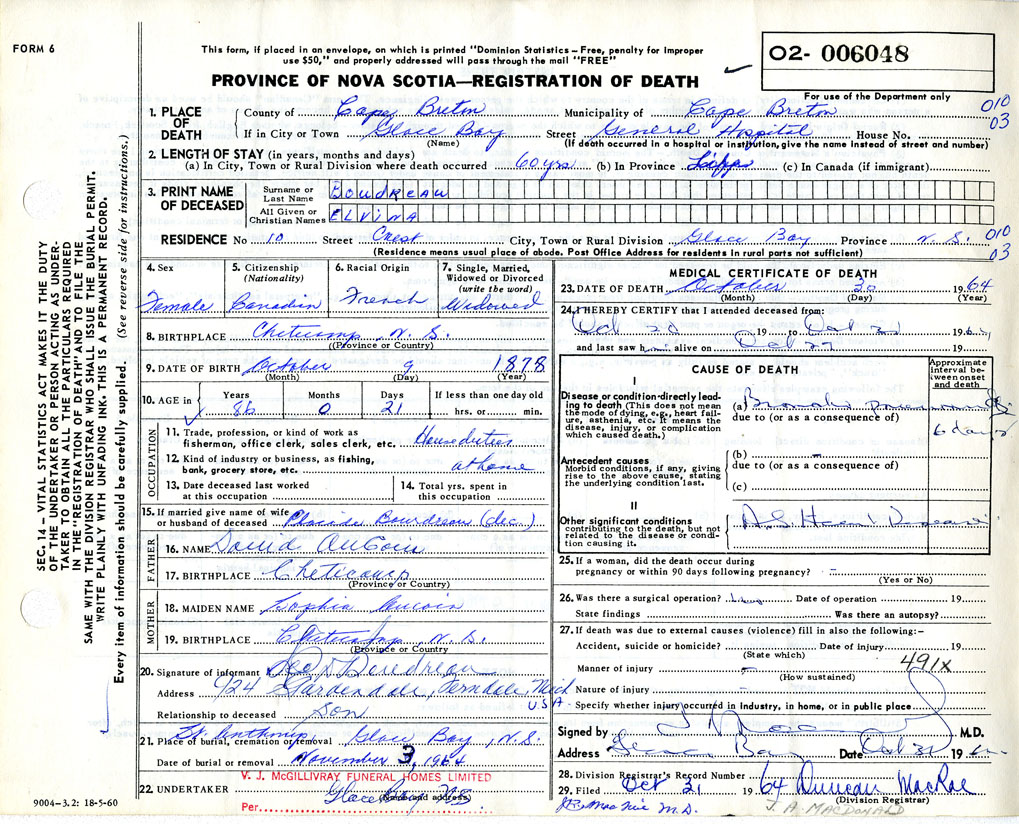 FORM 6
This form, if placed in an envelope, on which is printed "Dominion Statistics – Free, penalty for improper
use $50," and properly addressed will pass through the mail "FREE"
PROVINCE OF NOVA SCOTIA—REGISTRATION OF DEATH
02- 006048
For use of the Department only
SEC. 14 – VITAL STATISTICS ACT MAKES IT THE DUTY
OF THE UNDERTAKER OR PERSON ACTING AS UNDER-
TAKER TO OBTAIN ALL THE PARTICULARS REQUIRED
IN THE "REGISTRATION OF DEATH" AND TO FILE THE
SAME WITH THE DIVISION REGISTRAR WHO SHALL ISSUE THE BURIAL PERMIT.
WRITE PLAINLY WITH UNFADING INK. THIS IS A PERMANENT RECORD.
Every item of information should be carefully supplied. (See reverse side for instructions.)
1. PLACE OF DEATH
County of Cape Breton Municipality of Cape Breton 010
If in City or Town Glace Bay Street General Hospital House No. 03
(Name) (If death occurred in a hospital or institution, give the name instead of street and number)
2. LENGTH OF STAY (in years, months and days)
(a) In City, Town or Rural Division where death occurred 60 yrs (b) In Province (c) In Canada (if immigrant)
3. PRINT NAME OF DECEASED
Surname or Last Name BOUDREAU
All Given or Christian Names ELVINA
RESIDENCE No 10 Street Crest City, Town or Rural Division Glace Bay Province N. S. 010
(Residence means usual place of abode. Post Office Address for residents in rural parts not sufficient) 03
4. Sex Female
5. Citizenship (Nationality) Canadian
6. Racial Origin French
7. Single, Married, Widowed or Divorced (write the word) Widowed
8. BIRTHPLACE Cheticamp, N. S.
(Province or Country)
9. DATE OF BIRTH October 9 1878
(Month) (Day) (Year)
10. AGE in Years Months Days If less than one day old
86 0 21 hrs. or min.
OCCUPATION
11. Trade, profession, or kind of work as
fisherman, office clerk, sales clerk, etc. Houseduties
12. Kind of industry or business, as fishing,
bank, grocery store, etc. at home
13. Date deceased last worked
at this occupation
14. Total yrs. spent in
this occupation
15. If married give name of wife
or husband of deceased Placide Bourdreau (dec.)
FATHER
16. NAME David AuCoin
17. BIRTHPLACE Cheticamp
(Province or Country)
MOTHER
18. MAIDEN NAME Sophia Aucoin
19. BIRTHPLACE Cheticamp, N. S.
(Province or Country)
20. Signature of informant
Address 424 Gardendale, Ferndale, Mich
U S A
Relationship to deceased Son
St. Anthony
21. Place of burial, cremation or removal Glace Bay, N.S.
Date of burial or removal November 3, 1964
V. J. McGILLIVRAY FUNERAL HOMES LIMITED
22. UNDERTAKER Glace Bay NS
(Name and address)
Per
9004-3.2: 18-5-60
MEDICAL CERTIFICATE OF DEATH
23. DATE OF DEATH October 30 1964
(Month) (Day) (Year)
24. I HEREBY CERTIFY that I attended deceased from:
Oct 19 to Oct 196
and last saw h alive on Oct 29 19
CAUSE OF DEATH
Approximate interval between onset and death
I
Disease or condition directly lead-
ing to death (This does not mean
the mode of dying, e.g., heart fail-
ure, asthenia, etc. It means the
disease, injury, or complication
which caused death.)
(a) Broncho pneumonia
due to (or as a consequence of) 6 days
Antecedent causes
Morbid conditions, if any, giving
rise to the above cause, stating
the underlying condition last.
(b)
due to (or as a consequence of)
(c)
II
Other significant conditions
contributing to the death, but not
related to the disease or condi-
tion causing it.
A.S. Heart Disease
25. If a woman, did the death occur during
pregnancy or within 90 days following pregnancy? –
(Yes or No)
26. Was there a surgical operation? Date of operation 19
State findings Was there an autopsy?
27. If death was due to external causes (violence) fill in also the following:–
Accident, suicide or homicide? Date of injury 19
(State which)
Manner of injury – 491X
(How sustained)
Nature of injury –
Specify whether injury occurred in industry, in home, or in public place
Signed by M.D.
Address Glace Bay Date Oct 31 196
28. Division Registrar's Record Number
29. Filed Oct 31 1964 Duncan MacRae
(Division Registrar)
M.D.
J. A. MACDONALD